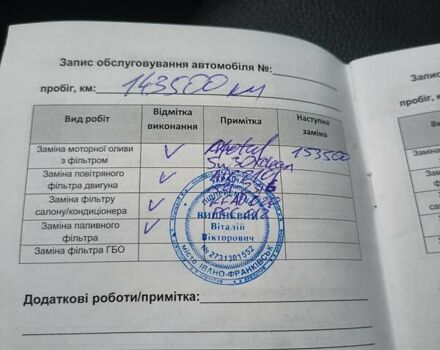 Запис обслуговування автомобіля №:
пробіг, км: 143500 км
Вид робіт Відмітка виконання Примітка Наступна заміна
Заміна моторної оливи з фільтром 5w30 153500
Заміна повітряного фільтра двигуна
Заміна фільтру салону/кондиціонера
Заміна паливного фільтра
Заміна фільтра ГБО
УКРАЇНА
Віталій
Вікторович
№ 2731301552
МІСТО ІВАНО-ФРАНКІВСЬК
Додаткові роботи/примітка:
Запис
пробіг
В
Замін
з
Зам
фі
За